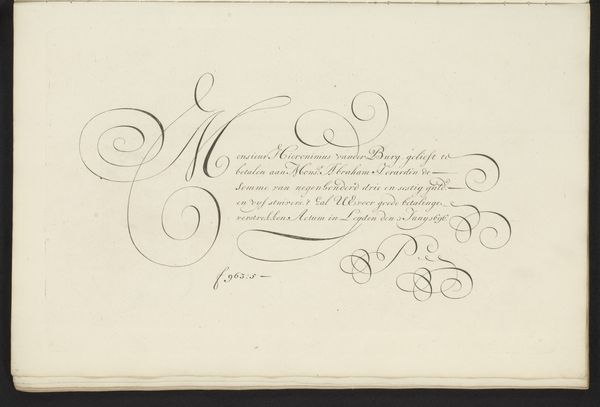 Monsieur, Hieronimus vander Burg, gelieft te
betalen aan Mons.r Abraham Gerardin de
somme van negenhonderd drie en sestig guld.s
en vyf stuivers, 't Zal UE voor goede betalinge
verstrekken Actum in Leyden den 2 Juny 1696
P
f 963:5 —